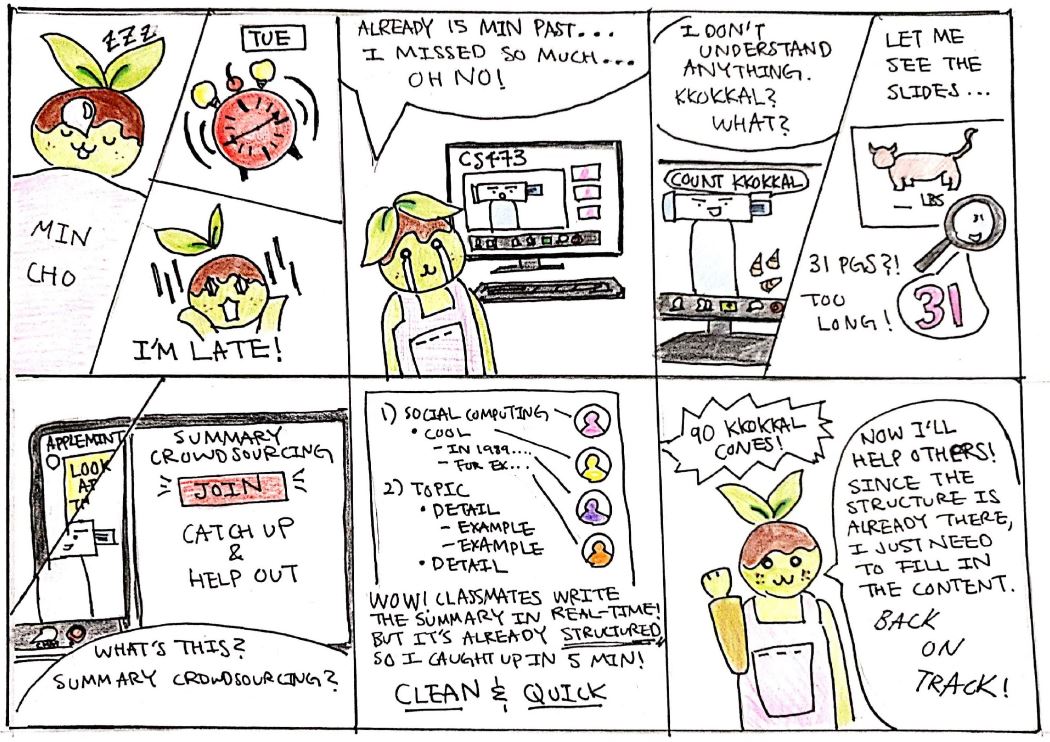 ZZZ
TUE
MIN
CHO
I'M LATE!
ALREADY 15 MIN PAST...
I MISSED SO MUCH...
OH NO!
CS473
I DON'T
UNDERSTAND
ANYTHING.
KKOKKAL?
WHAT?
COUNT KKOKKAL
LET ME
SEE THE
SLIDES...
__ LBS
31
31 PGS?!
TOO
LONG!
31
APPLEMINT
LOOK
AT
SUMMARY
CROWDSOURCING
JOIN
CATCH UP
&
HELP OUT
WHAT'S THIS?
SUMMARY CROWDSOURCING?
1) SOCIAL COMPUTING
• COOL
- IN 1989....
- FOR EX...
2) TOPIC
• DETAIL
- EXAMPLE
- EXAMPLE
• DETAIL
WOW! CLASSMATES WRITE
THE SUMMARY IN REAL-TIME!
BUT IT'S ALREADY STRUCTURED
SO I CAUGHT UP IN 5 MIN!
CLEAN & QUICK
90 KKOKKAL
CONES!
NOW I'LL
HELP OTHERS!
SINCE THE
STRUCTURE IS
ALREADY THERE,
I JUST NEED
TO FILL IN
THE CONTENT.
BACK
ON
TRACK!